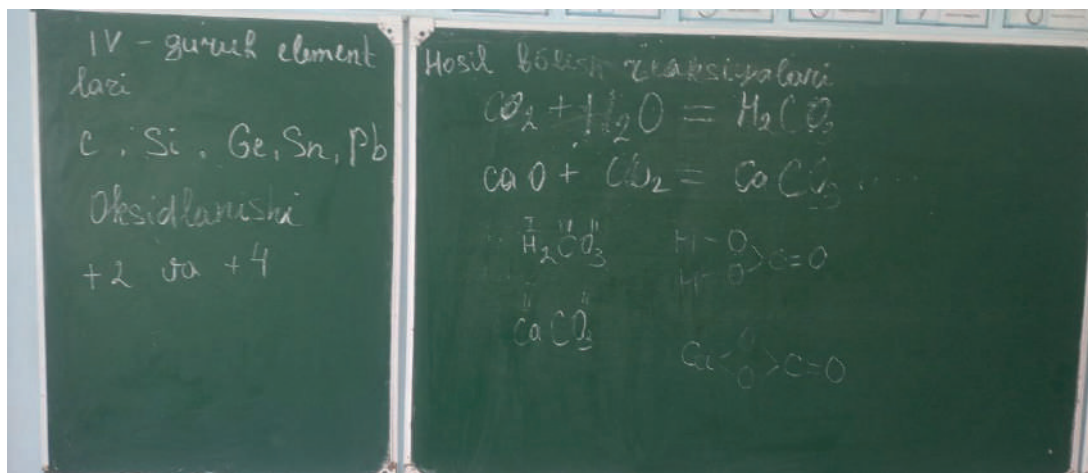 IV - guruh element
lari
C, Si, Ge, Sn, Pb
Oksidlanishi
+2 va +4
Hosil bólish reaksiyalari
CO₂ + H₂O = H₂CO₃
CaO + CO₂ = CaCO₃ ....
I IV II
H₂CO₃
H-O
H-O>C=O
II II
CaCO₃
Ca<O
O>C=O